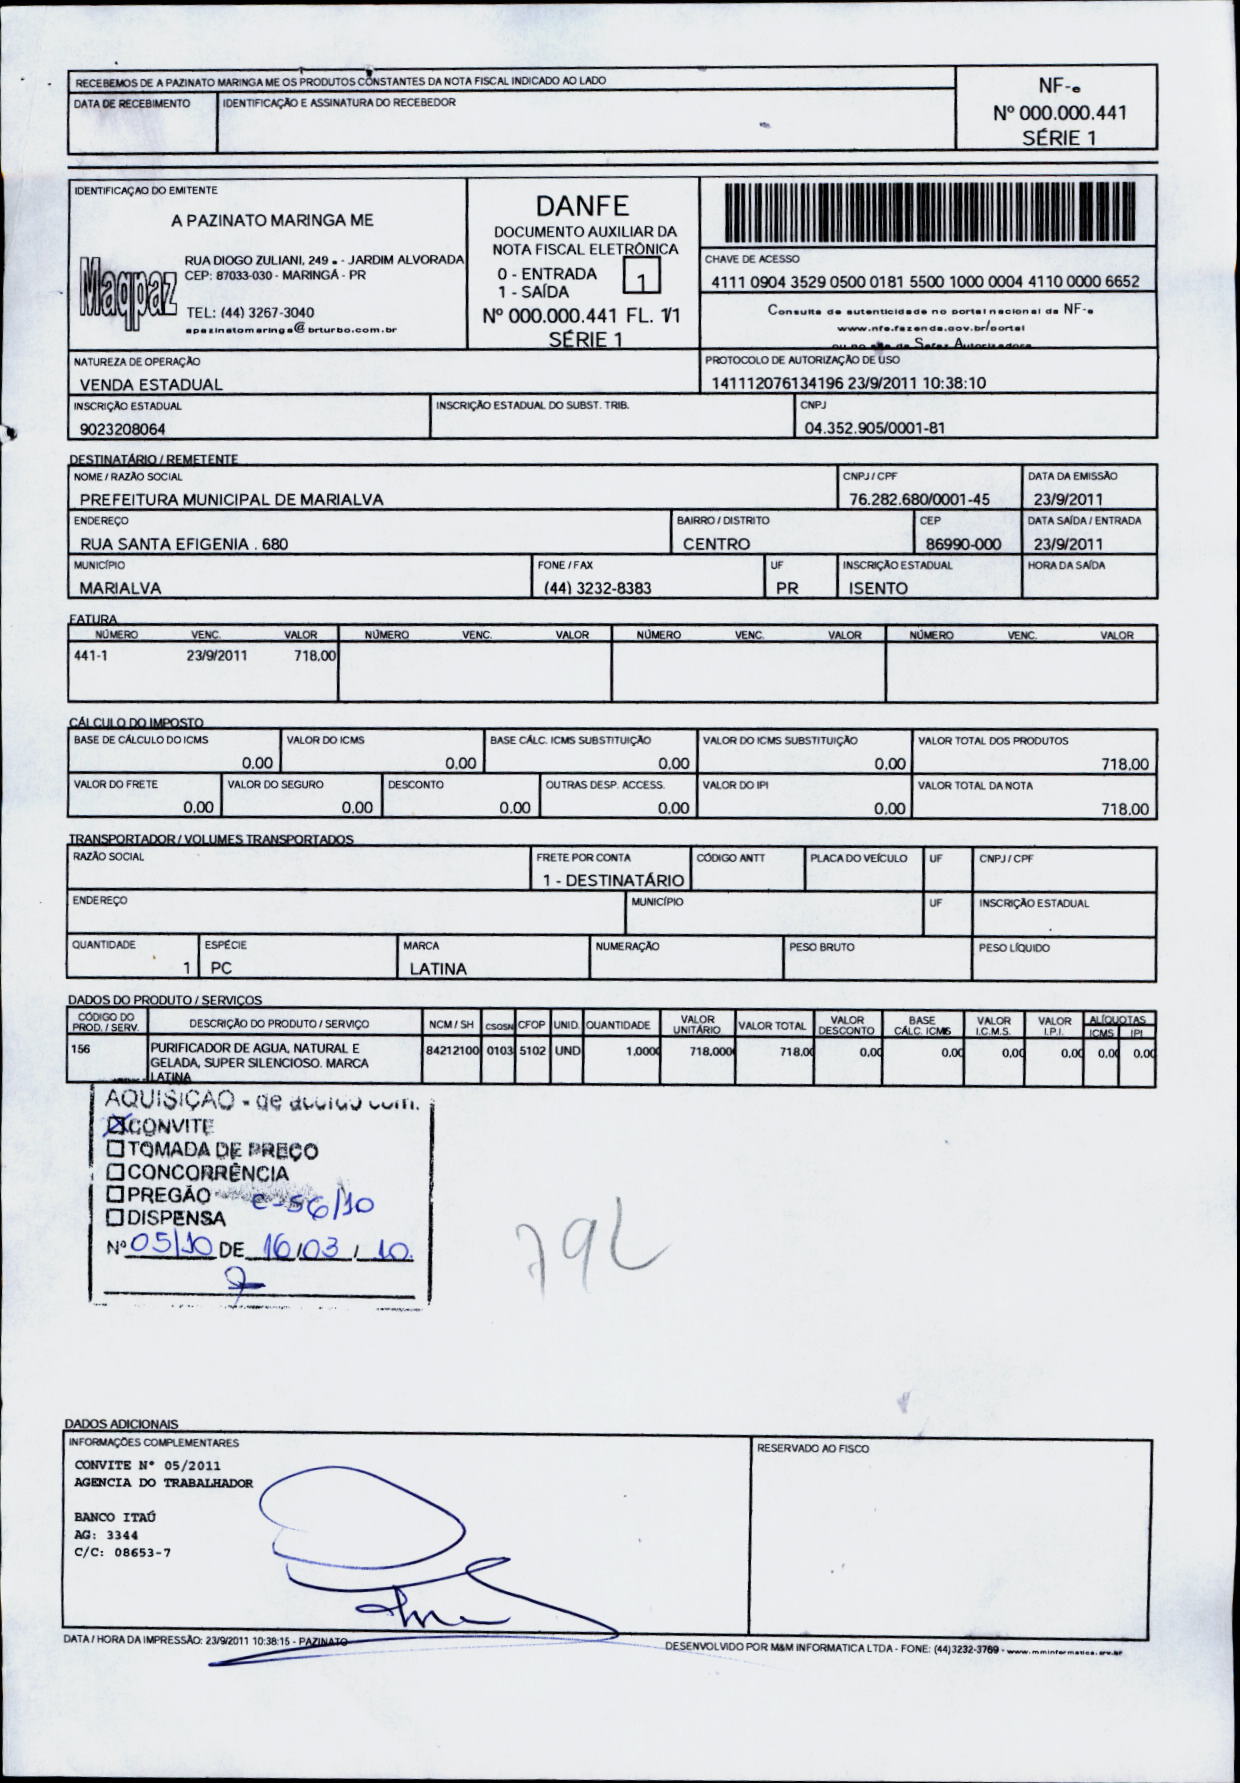 RECEBEMOS DE A PAZINATO MARINGA ME OS PRODUTOS CONSTANTES DA NOTA FISCAL INDICADO AO LADO
DATA DE RECEBIMENTO IDENTIFICAÇÃO E ASSINATURA DO RECEBEDOR
NF-e
Nº 000.000.441
SÉRIE 1
IDENTIFICAÇAO DO EMITENTE
A PAZINATO MARINGA ME
Maqpaz
RUA DIOGO ZULIANI, 249 . - JARDIM ALVORADA
CEP: 87033-030 - MARINGÁ - PR
TEL: (44) 3267-3040
apazinatomaringa@brturbo.com.br
DANFE
DOCUMENTO AUXILIAR DA
NOTA FISCAL ELETRÔNICA
0 - ENTRADA
1 - SAÍDA
1
Nº 000.000.441 FL. 1/1
SÉRIE 1
CHAVE DE ACESSO
4111 0904 3529 0500 0181 5500 1000 0004 4110 0000 6652
Consulta de autenticidade no portal nacional da NF-e
www.nfe.fazenda.gov.br/portal
ou no site da Sefaz Autorizadora
NATUREZA DE OPERAÇÃO
VENDA ESTADUAL
PROTOCOLO DE AUTORIZAÇÃO DE USO
141112076134196 23/9/2011 10:38:10
INSCRIÇÃO ESTADUAL INSCRIÇÃO ESTADUAL DO SUBST. TRIB. CNPJ
9023208064 04.352.905/0001-81
DESTINATÁRIO / REMETENTE
NOME / RAZÃO SOCIAL CNPJ / CPF DATA DA EMISSÃO
PREFEITURA MUNICIPAL DE MARIALVA 76.282.680/0001-45 23/9/2011
ENDEREÇO BAIRRO / DISTRITO CEP DATA SAÍDA / ENTRADA
RUA SANTA EFIGENIA . 680 CENTRO 86990-000 23/9/2011
MUNICÍPIO FONE / FAX UF INSCRIÇÃO ESTADUAL HORA DA SAÍDA
MARIALVA (44) 3232-8383 PR ISENTO
FATURA
NÚMERO VENC. VALOR NÚMERO VENC. VALOR NÚMERO VENC. VALOR NÚMERO VENC. VALOR
441-1 23/9/2011 718,00
CÁLCULO DO IMPOSTO
BASE DE CÁLCULO DO ICMS VALOR DO ICMS BASE CÁLC. ICMS SUBSTITUIÇÃO VALOR DO ICMS SUBSTITUIÇÃO VALOR TOTAL DOS PRODUTOS
0,00 0,00 0,00 0,00 718,00
VALOR DO FRETE VALOR DO SEGURO DESCONTO OUTRAS DESP. ACCESS. VALOR DO IPI VALOR TOTAL DA NOTA
0,00 0,00 0,00 0,00 0,00 718,00
TRANSPORTADOR / VOLUMES TRANSPORTADOS
RAZÃO SOCIAL FRETE POR CONTA CÓDIGO ANTT PLACA DO VEÍCULO UF CNPJ / CPF
1 - DESTINATÁRIO
ENDEREÇO MUNICÍPIO UF INSCRIÇÃO ESTADUAL
QUANTIDADE ESPÉCIE MARCA NUMERAÇÃO PESO BRUTO PESO LÍQUIDO
1 PC LATINA
DADOS DO PRODUTO / SERVIÇOS
CÓDIGO DO PROD. / SERV. DESCRIÇÃO DO PRODUTO / SERVIÇO NCM / SH CSOSN CFOP UNID. QUANTIDADE VALOR UNITÁRIO VALOR TOTAL VALOR DESCONTO BASE CÁLC. ICMS VALOR I.C.M.S. VALOR I.P.I. ALÍQUOTAS ICMS IPI
156 PURIFICADOR DE AGUA, NATURAL E 84212100 0103 5102 UND 1,0000 718,000 718,00 0,00 0,00 0,00 0,00 0,00 0,00
GELADA, SUPER SILENCIOSO. MARCA
LATINA
AQUISIÇÃO - de acordo com.
CONVITE
TOMADA DE PREÇO
CONCORRÊNCIA
PREGÃO e-56/10
DISPENSA
Nº 05/10 DE 16/03/10.
792
DADOS ADICIONAIS
INFORMAÇÕES COMPLEMENTARES RESERVADO AO FISCO
CONVITE N° 05/2011
AGENCIA DO TRABALHADOR
BANCO ITAÚ
AG: 3344
C/C: 08653-7
DATA / HORA DA IMPRESSÃO: 23/9/2011 10:38:15 - PAZINATO
DESENVOLVIDO POR M&M INFORMATICA LTDA - FONE: (44)3232-3769 - www.mminformatica.srv.br